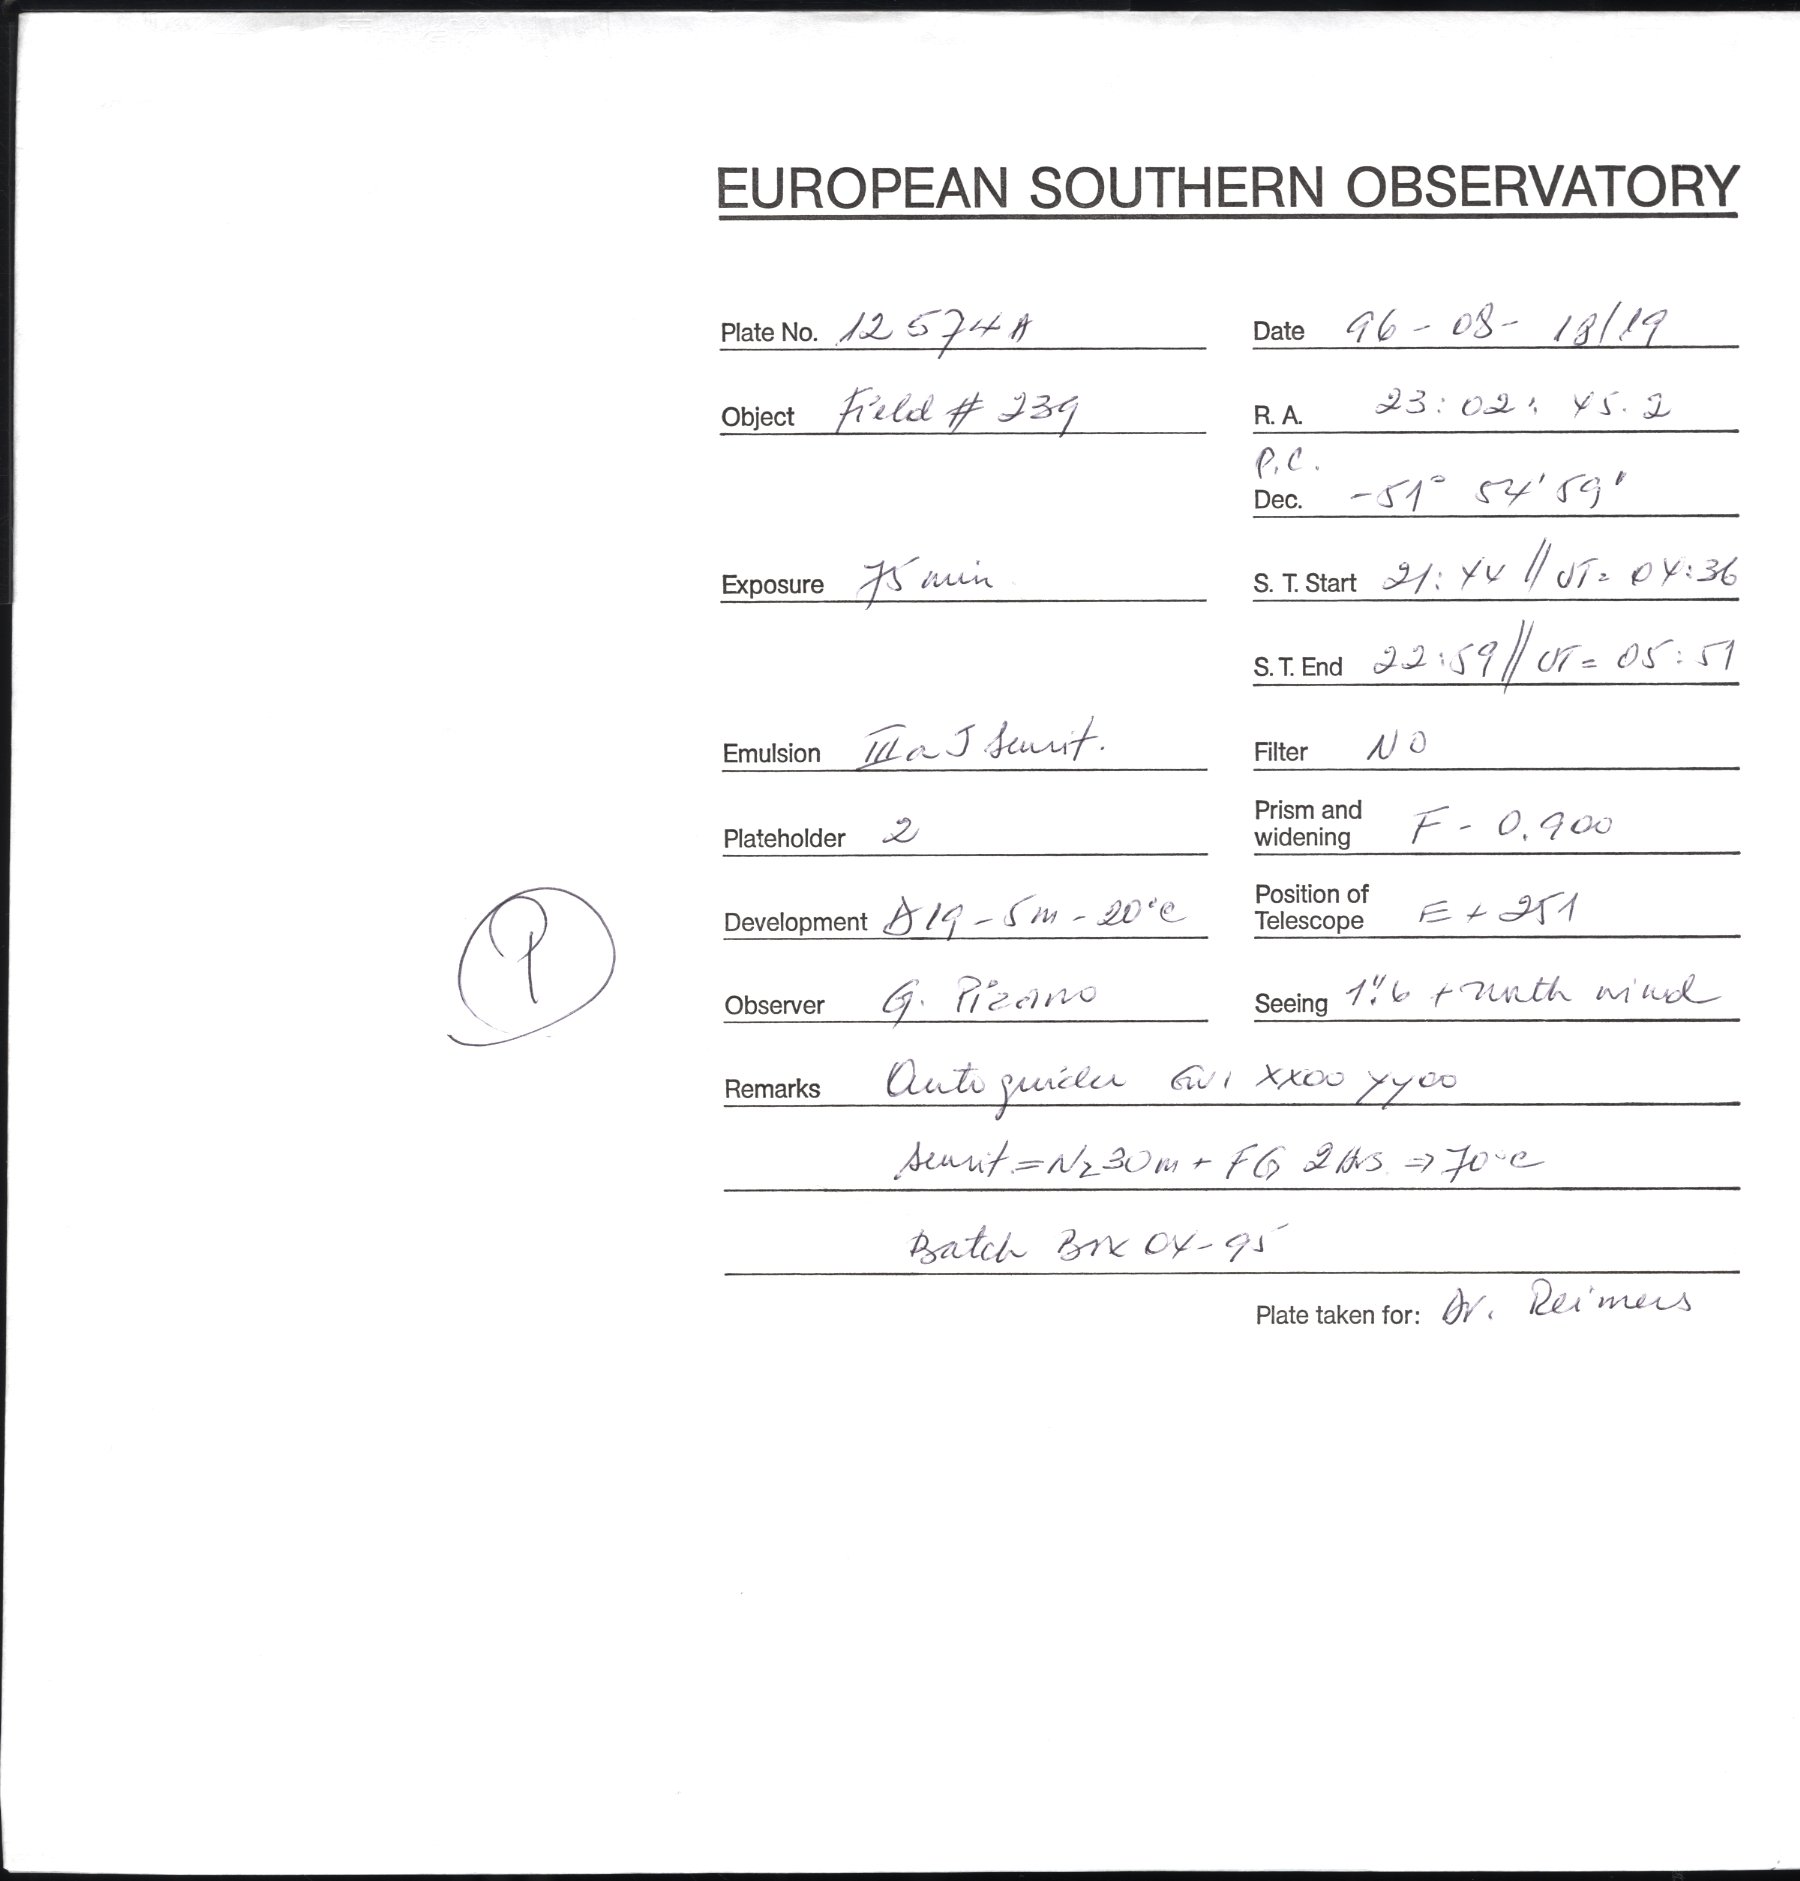 EUROPEAN SOUTHERN OBSERVATORY
Plate No. 12574A
Date 96-08-18/19
Object Field # 239
R. A. 23:02:45.2
P.C.
Dec. -51° 54' 59'
Exposure 75 min
S. T. Start 21:44 // UT= 04:36
S. T. End 22:59 // UT= 05:51
Emulsion III a J Sensit.
Filter NO
Plateholder 2
Prism and
widening F - 0.900
Development D19 - 5m - 20°C
Position of
Telescope E + 251
P
Observer G. Pizarro
Seeing 1".6 + North wind
Remarks Autoguider XX00 YY00
Sensit = N2 30m + FG 2 Hrs => 70°C
Batch Box 04-95
Plate taken for: Dr. Reimers